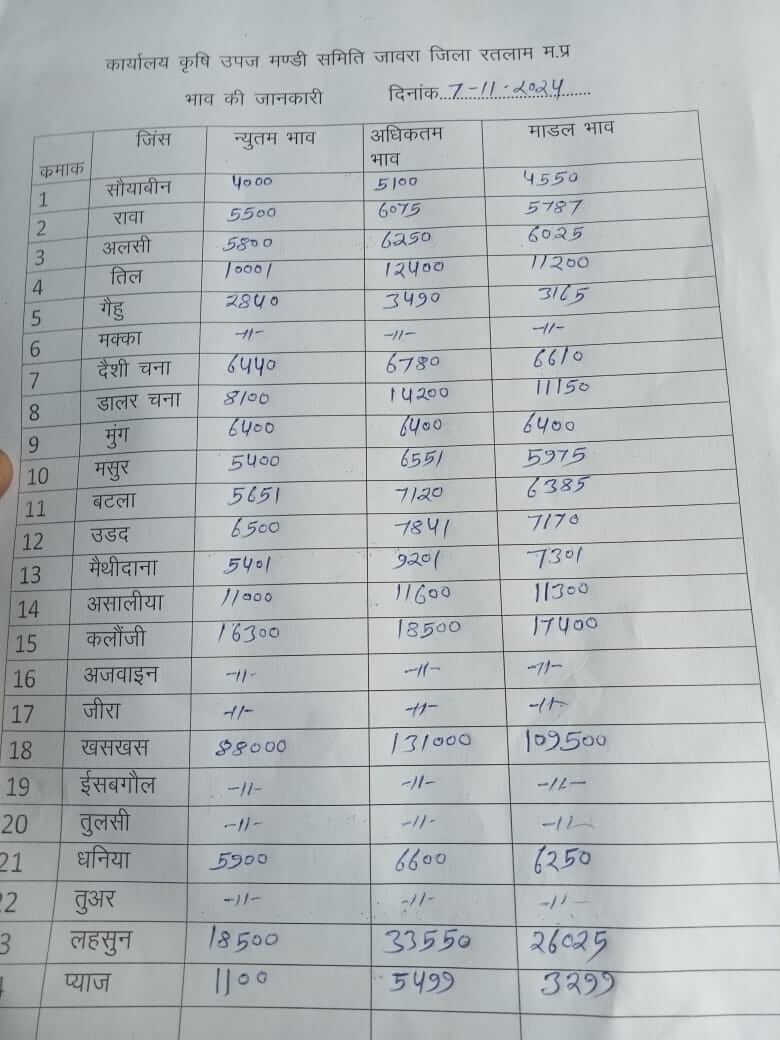 कार्यालय कृषि उपज मण्डी समिति जावरा जिला रतलाम म.प्र
भाव की जानकारी दिनांक..7-11-2024......
कमाक जिंस न्युतम भाव अधिकतम भाव माडल भाव
1 सौयाबीन 4000 5100 4550
2 रावा 5500 6075 5787
3 अलसी 5800 6250 6025
4 तिल 10001 12400 11200
5 गैहु 2840 3490 3165
6 मक्का -11- -11- -11-
7 दैशी चना 6440 6780 6610
8 डालर चना 8100 14200 11150
9 मुंग 6400 6400 6400
10 मसुर 5400 6551 5975
11 बटला 5651 7120 6385
12 उडद 6500 7841 7170
13 मैथीदाना 5401 9201 7301
14 असालीया 11000 11600 11300
15 कलौंजी 16300 18500 17400
16 अजवाइन -11- -11- -11-
17 जीरा -11- -11- -11-
18 खसखस 88000 131000 109500
19 ईसबगौल -11- -11- -11-
20 तुलसी -11- -11- -11-
21 धनिया 5900 6600 6250
2 तुअर -11- -11- -11-
3 लहसुन 18500 33550 26025
प्याज 1100 5499 3299